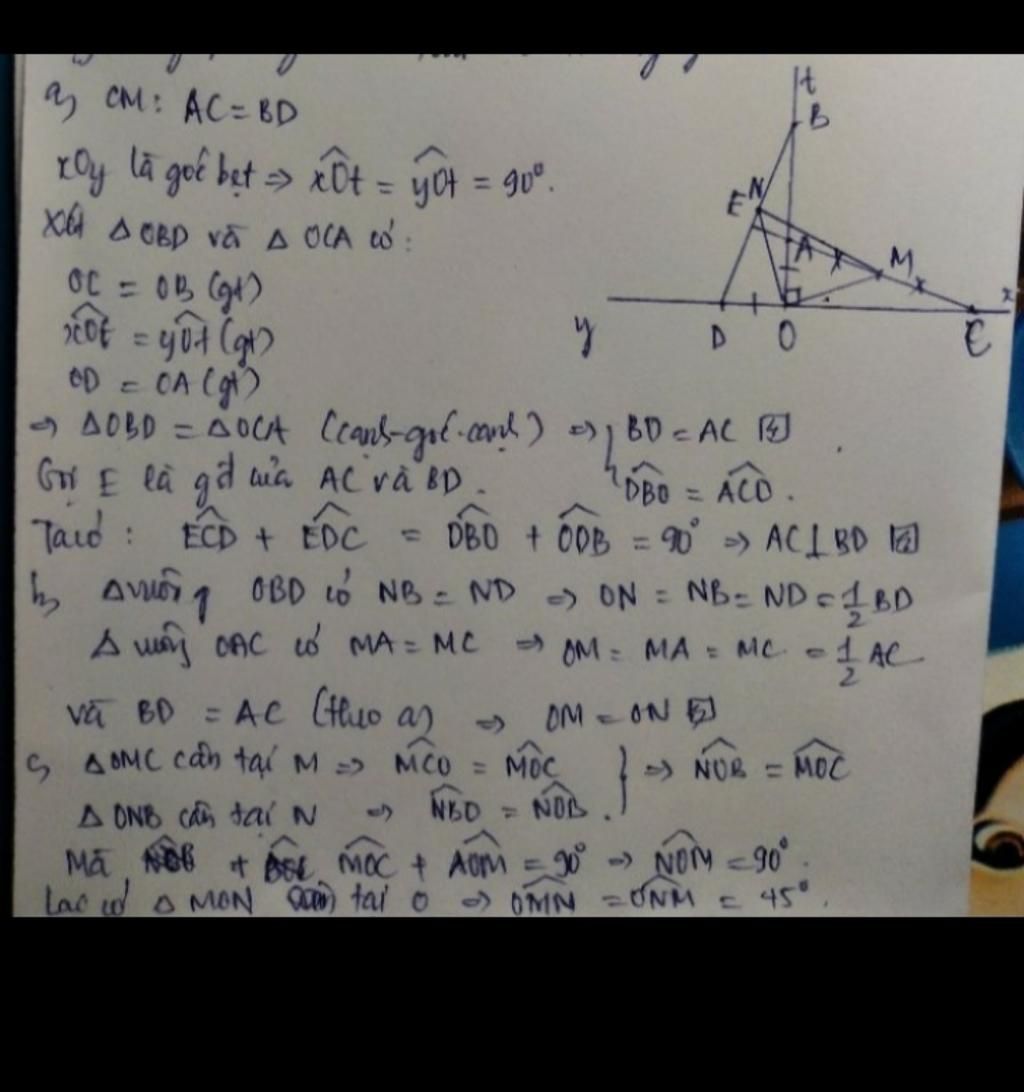 a, CM: AC = BD
xOy là góc bẹt => xOt = yOt = 90°.
Xét △OBD và △ OCA có:
OC = OB (gt)
xOt = yOt (gt)
OD = OA (gt)
=> △OBD = △OCA (cạnh-góc-cạnh) => BD = AC
DBO = ACO.
Gọi E là gđ của AC và BD.
Ta có: ECD + EDC = DBO + ODB = 90° => AC⊥BD
b, △vuông OBD có NB = ND => ON = NB = ND = 1/2 BD
△ vuông OAC có MA = MC => OM = MA = MC = 1/2 AC
và BD = AC (theo a) => OM = ON
c, △OMC cân tại M => MCO = MOC
△ ONB cân tại N => NBO = NOB. } => NOB = MOC
Mà MOC + AOM = 90° => NOM = 90°.
Lại có △ MON tại O => OMN = ONM = 45°.
t
B
N
E
A
M
x
y
D
O
C